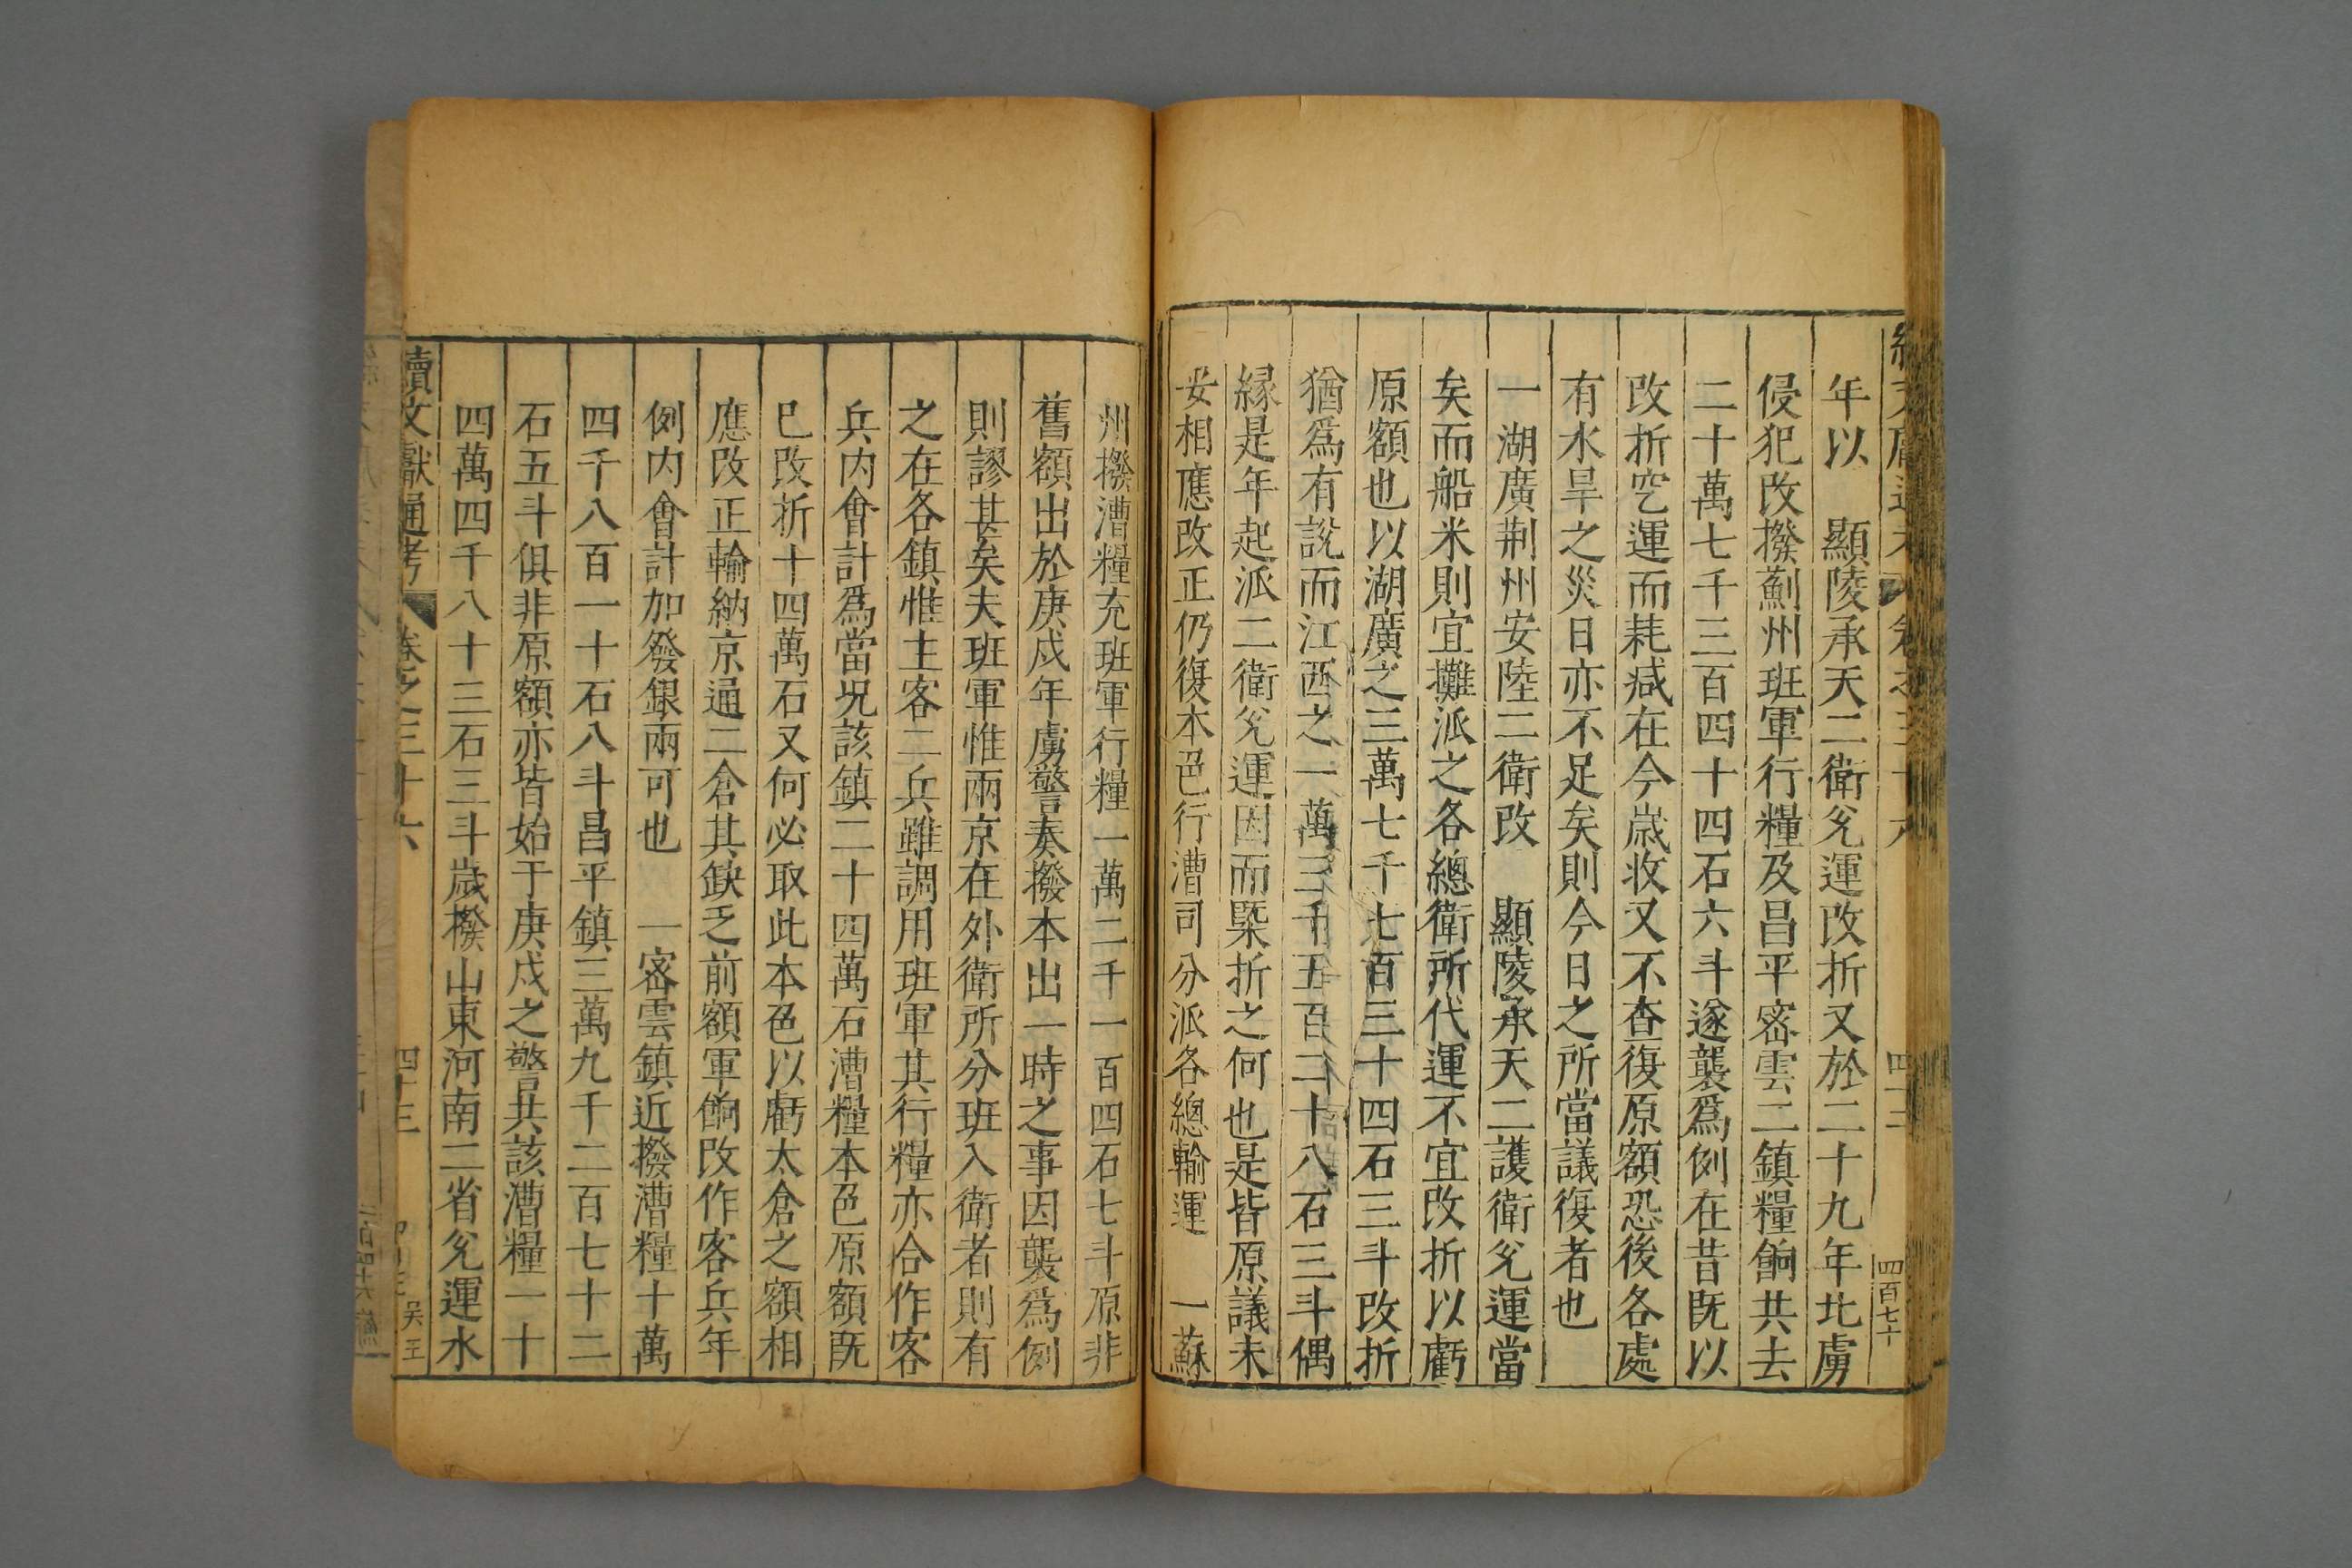 年以　顯陵承天二衛兌運改折又於二十九年北虜
侵犯改撥薊州班軍行糧及昌平密雲二鎮糧餉共去
二十萬七千三百四十四石六斗遂襲爲例在昔旣以
改折空運而耗减在今歲收又不查復原額恐後各處
有水旱之災日亦不足矣則今日之所當議復者也
一湖廣荆州安陸二衛改　顯陵承天二護衛兌運當
矣而船米則宜攤派之各總衛所代運不宜改折以虧
原額也以湖廣之三萬七千七百三十四石三斗改折
猶爲有說而江西之一萬三千五百二十八石三斗偶
縁是年起派二衛兌運因而槩折之何也是皆原議未
妥相應改正仍復本色行漕司分派各總輸運　一蘇
四百七十
州撥漕糧充班軍行糧一萬二千一百四石七斗原非
舊額出於庚戍年虜警奏撥本出一時之事因襲爲例
則謬甚矣夫班軍惟兩京在外衛所分班入衛者則有
之在各鎮惟主客二兵雖調用班軍其行糧亦合作客
兵内會計爲當况該鎮二十四萬石漕糧本色原額旣
已改折十四萬石又何必取此本色以虧太倉之額相
應改正輸納京通二倉其缺乏前額軍餉改作客兵年
例内會計加發銀兩可也　一密雲鎮近撥漕糧十萬
四千八百一十石八斗昌平鎮三萬九千二百七十二
石五斗俱非原額亦皆始于庚戍之警共該漕糧一十
四萬四千八十三石三斗歲撥山東河南二省兌運水
續文獻通考　卷之三十六　四十三
吴王